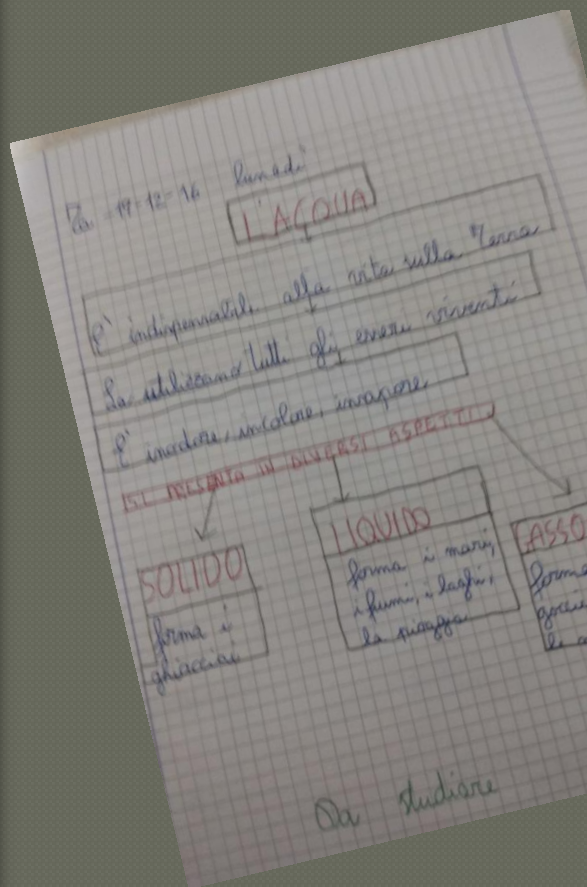 19-12-16 lunedì
L'ACQUA
È indispensabile alla vita sulla Terra
La utilizzano tutti gli esseri viventi
È inodore, incolore, insapore
SI PRESENTA IN DIVERSI ASPETTI
SOLIDO
forma i
ghiacciai
LIQUIDO
forma i mari,
i fiumi, i laghi,
la pioggia
GASSO
forma
Da studiare